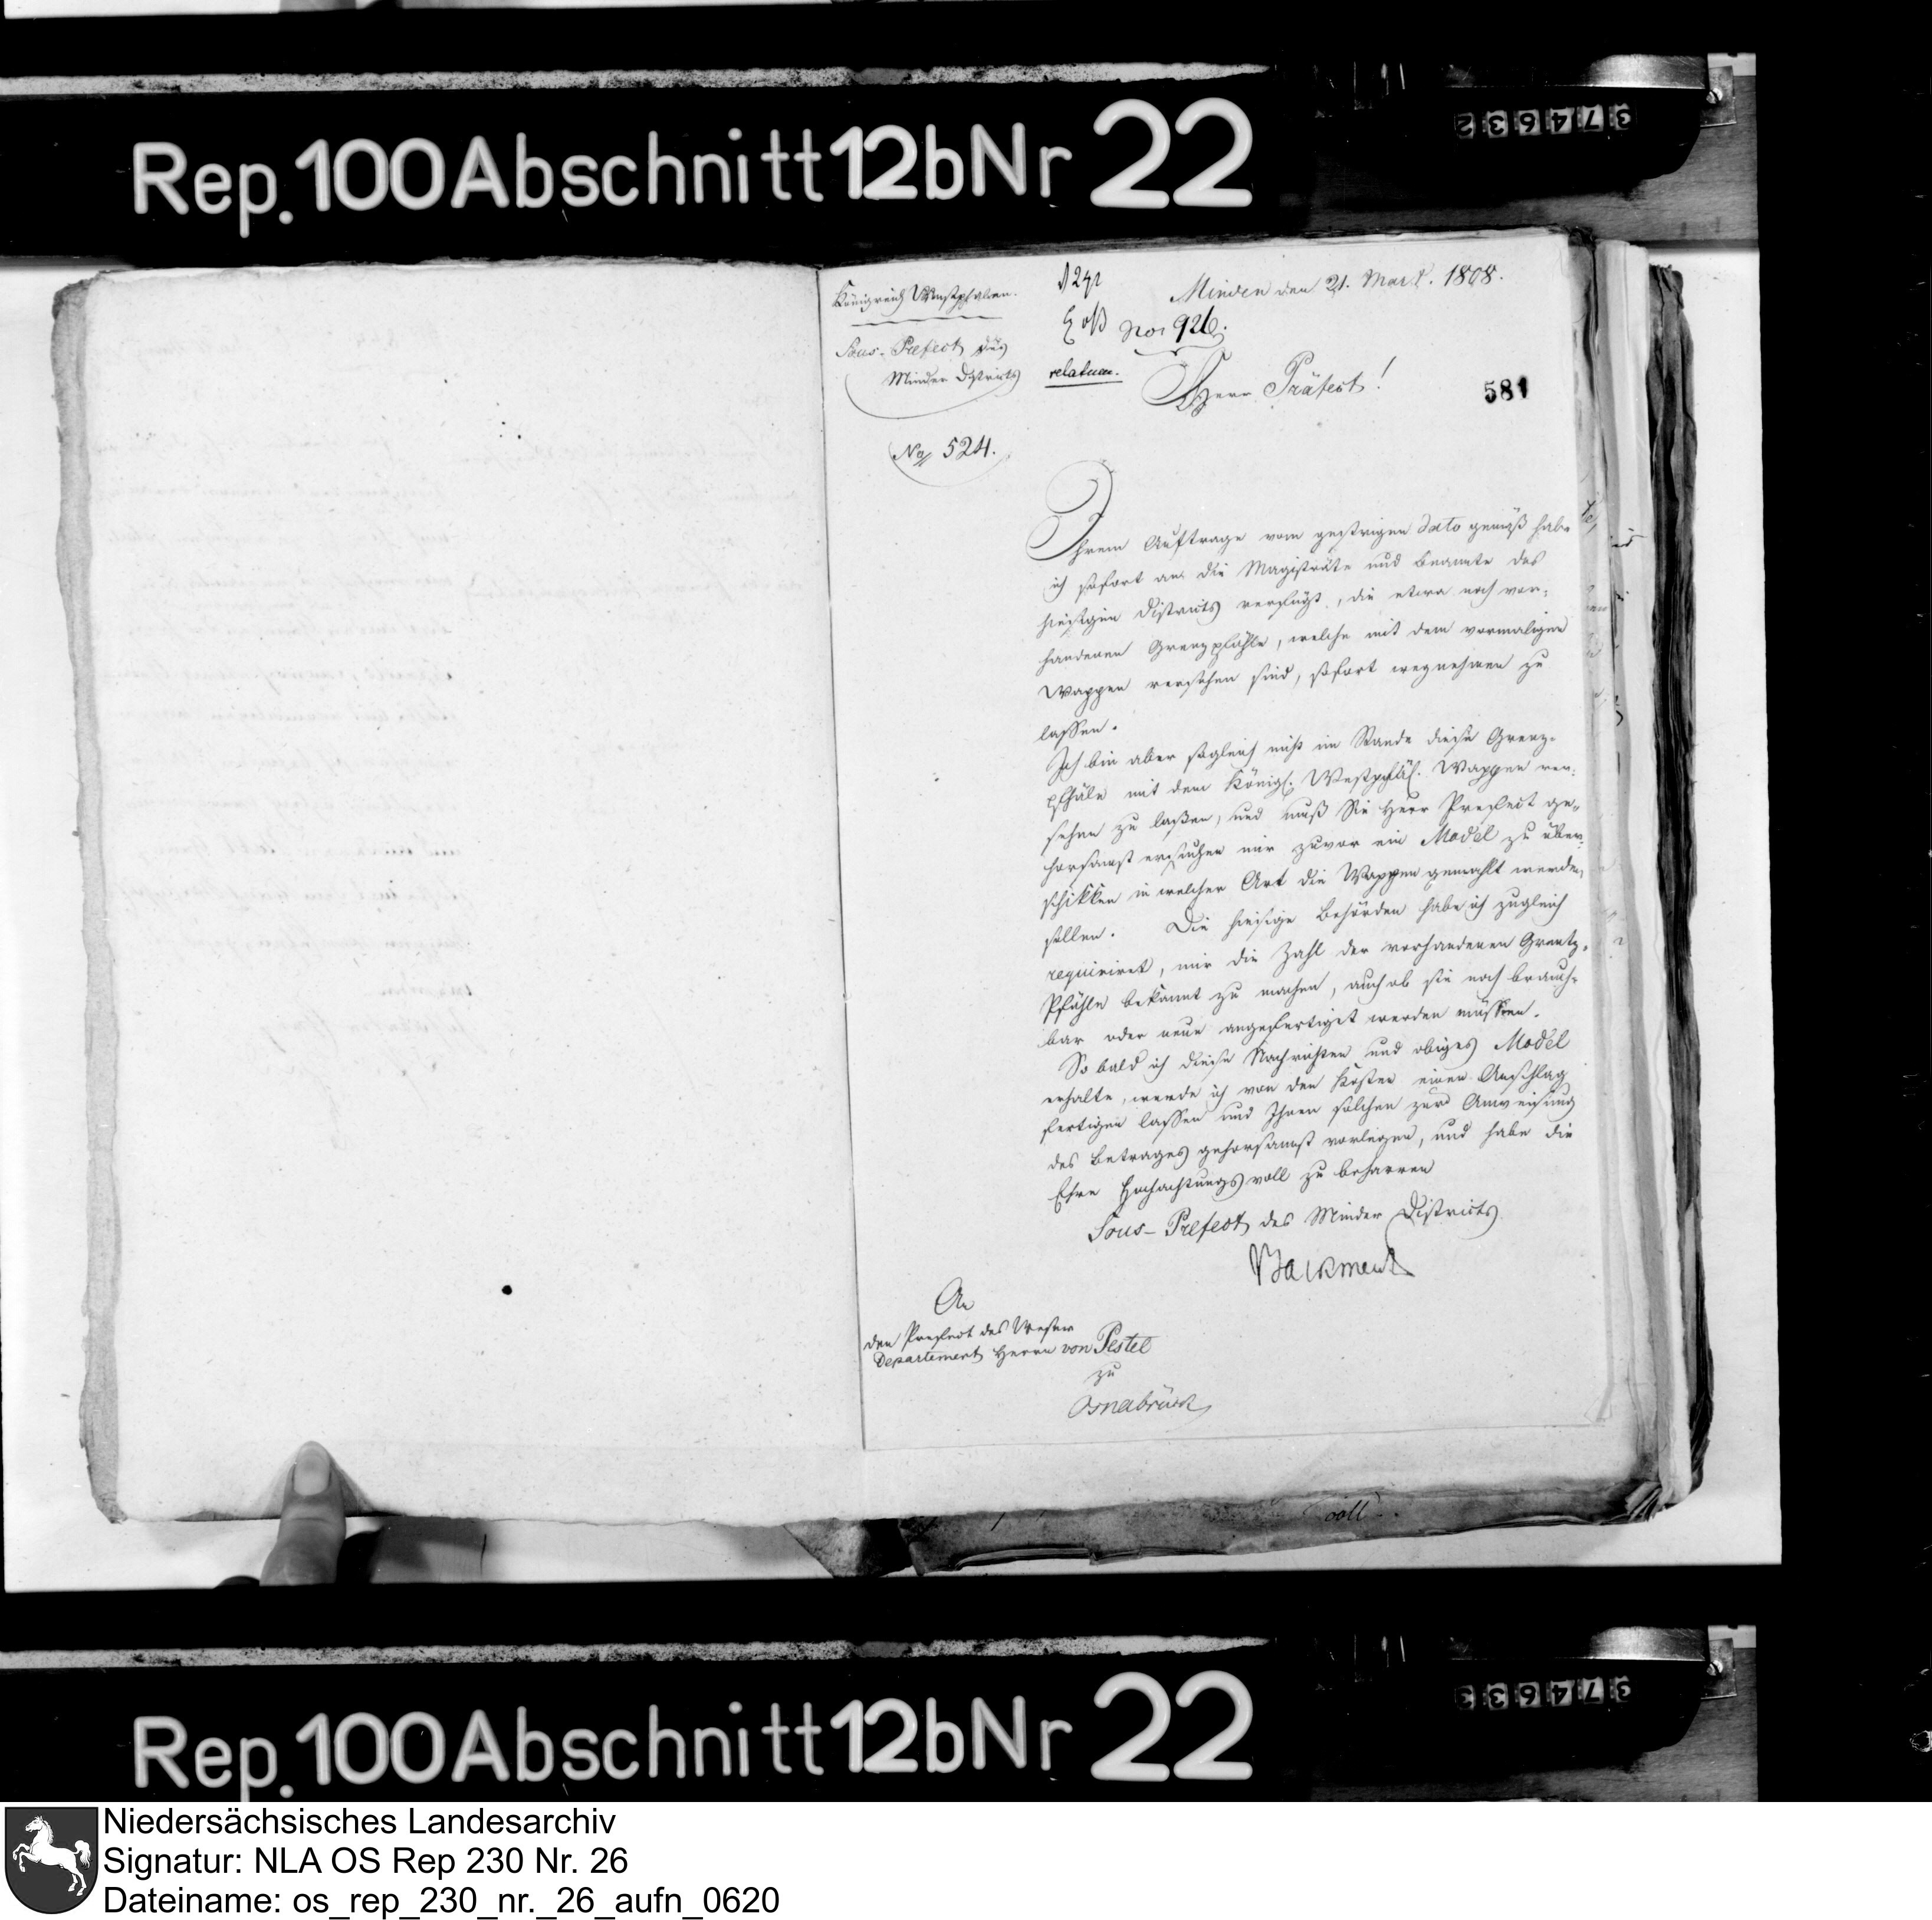 374632
Rep. 100 Abschnitt 12b Nr 22
Königreich Westphalen.
Minden den 21. Mart. 1808.
No: 926.
Sous-Prefect des
Minder Districts
relatum.
Herr Präfect!
581
No 524.
Ihrem Auftrage vom gestrigen dato gemäß habe
ich sofort an die Magisträte und Beamte des
hiesigen Districts verfügt, die etwa noch vor-
handenen Grenzpfähle, welche mit dem vormaligen
Wappen versehen sind, sofort wegnehmen zu
lassen.
Ich bin aber sogleich nicht im Stande diese Grenz-
pfäle mit dem Königl. Westphäl. Wappen ver-
sehen zu laßen, und muß Sie Herr Prefect ge-
horsamst ersuchen mir zuvor ein Model zu über-
schikken in welcher Art die Wappen gemahlt werden
sollen. Die hiesige Behörden habe ich zugleich
requiriret, mir die Zahl der vorhandenen Grentz-
Pfähle bekannt zu machen, auch ob sie noch brauch-
bar oder neue angefertiget werden müssen.
So bald ich diese Nachrichten und obiges Model
erhalte, werde ich von den Kosten einen Anschlag
fertigen lassen und Ihnen solchen zur Anweisung
des Betrages gehorsamst vorlegen, und habe die
Ehre Hochachtungsvoll zu beharren
Sous-Prefect des Minder Districts
An
den Prefect des Weser
Departement Herrn von Pestel
zu
Osnabrück
voll
374633
Rep. 100 Abschnitt 12b Nr 22
Niedersächsisches Landesarchiv
Signatur: NLA OS Rep 230 Nr. 26
Dateiname: os_rep_230_nr._26_aufn_0620